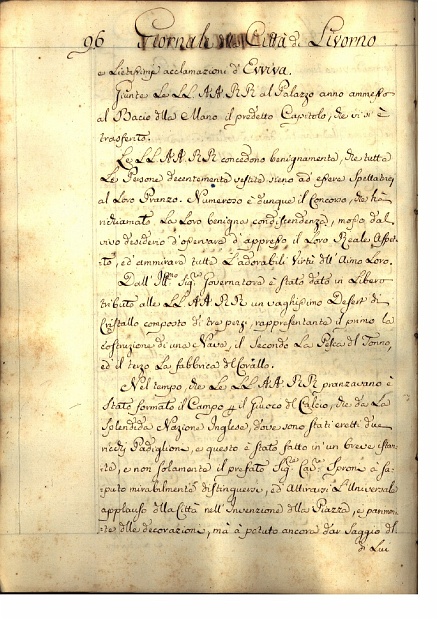 96 Giornale della Città di Livorno
e lietissime acclamazioni d'Evviva.
Giunte Le LL AA RR al Palazzo anno ammesso
al Bacio della Mano il predetto Capitolo, che vi si è
trasferito.
Le LL AA RR concedono benignamente, che tutte
Le Persone decentemente vestite sieno ad essere Spettatrici
al Loro Pranzo. Numeroso è dunque il Concorso, che hà
richiamato La Loro benigna condiscendenza, mosso dal
vivo desiderio d'osservare d'appresso il Loro Reale Aspet-
to, ed'ammirare tutte L'adorabili Virtù dell'Animo Loro.
Dall'Ill.mo Sig.re Governatore è stato dato in Libero
tributo alle LL AA RR un vaghissimo Desert di
Cristallo composto di tre pezzi, rappresentante il primo la
costruzione di una Nave, il Secondo La Pesca del Tonno,
ed il terzo La fabbrica del Corallo.
Nel tempo, che Le LL AA RR pranzavano è
Stato formato il Campo p il Giuoco del Calcio, che dà La
Splendida Nazione Inglese, dove sono stati eretti due
ricchi Padiglioni, e questo è stato fatto in un breve istan-
te, e non solamente il prefato Sig.re Cav.re Sproni à sa-
puto mirabilmente distinguersi, ed Attirarsi L'Universale
applauso della Città nell'Invenzione della Piazza, e
delle decorazioni, mà à potuto ancora dar saggio di
di Lui